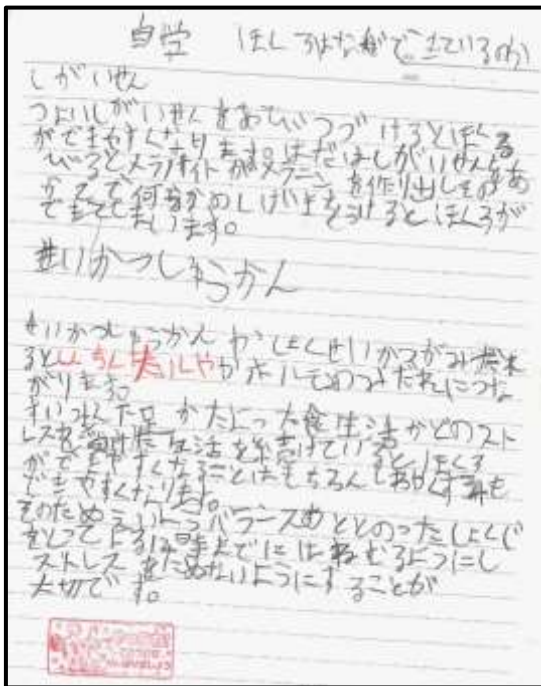 自学 ほくろはなぜできているのか
しがいせん
つよいしがいせんをあびつづけるとほくろ
ができやすくなります。はだはしがいせんをあ
びるとメラノサイトがメラニンを作り出しその
かていで何らかのしげきをうけるとほくろが
できてしまいます。
せいかつしゅうかん
せいかつしゅうかんやしょくせいかつがみだれ
ると
がります。
すいみん不足かたよった食生活かどのスト
レスを受けた生活を続けているとほくろ
ができやすくなることはもちろん
できやすくなります。
そのためえいようバランスのととのったしょくじ
をとってよるは早までにはねむるようにし
ストレスをためないようにすることが
大切です。